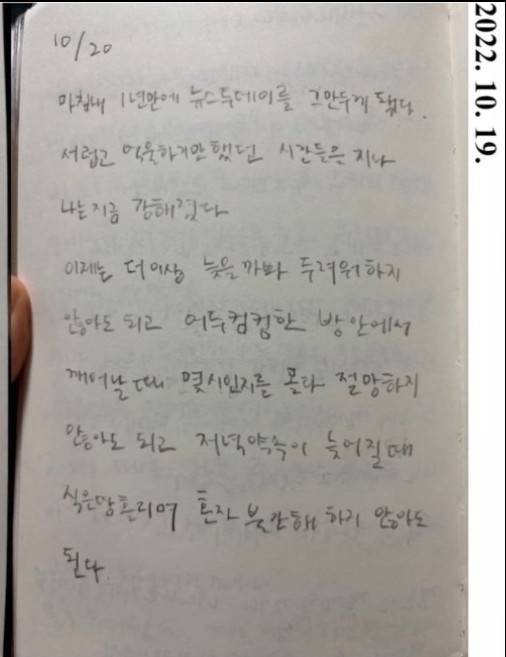 10/20
마침내 1년만에 뉴스투데이를 그만두게 됐다.
서럽고 억울하기만 했던 시간들은 지나
나는 지금 강해졌다
이제는 더 이상 늦을까봐 두려워하지
않아도 되고 어두컴컴한 방 안에서
깨어날 때 몇시인지를 몰라 절망하지
않아도 되고 저녁약속이 늦어질 때
식은땀 흘리며 혼자 불안해 하지 않아도
된다.
2022. 10. 19.